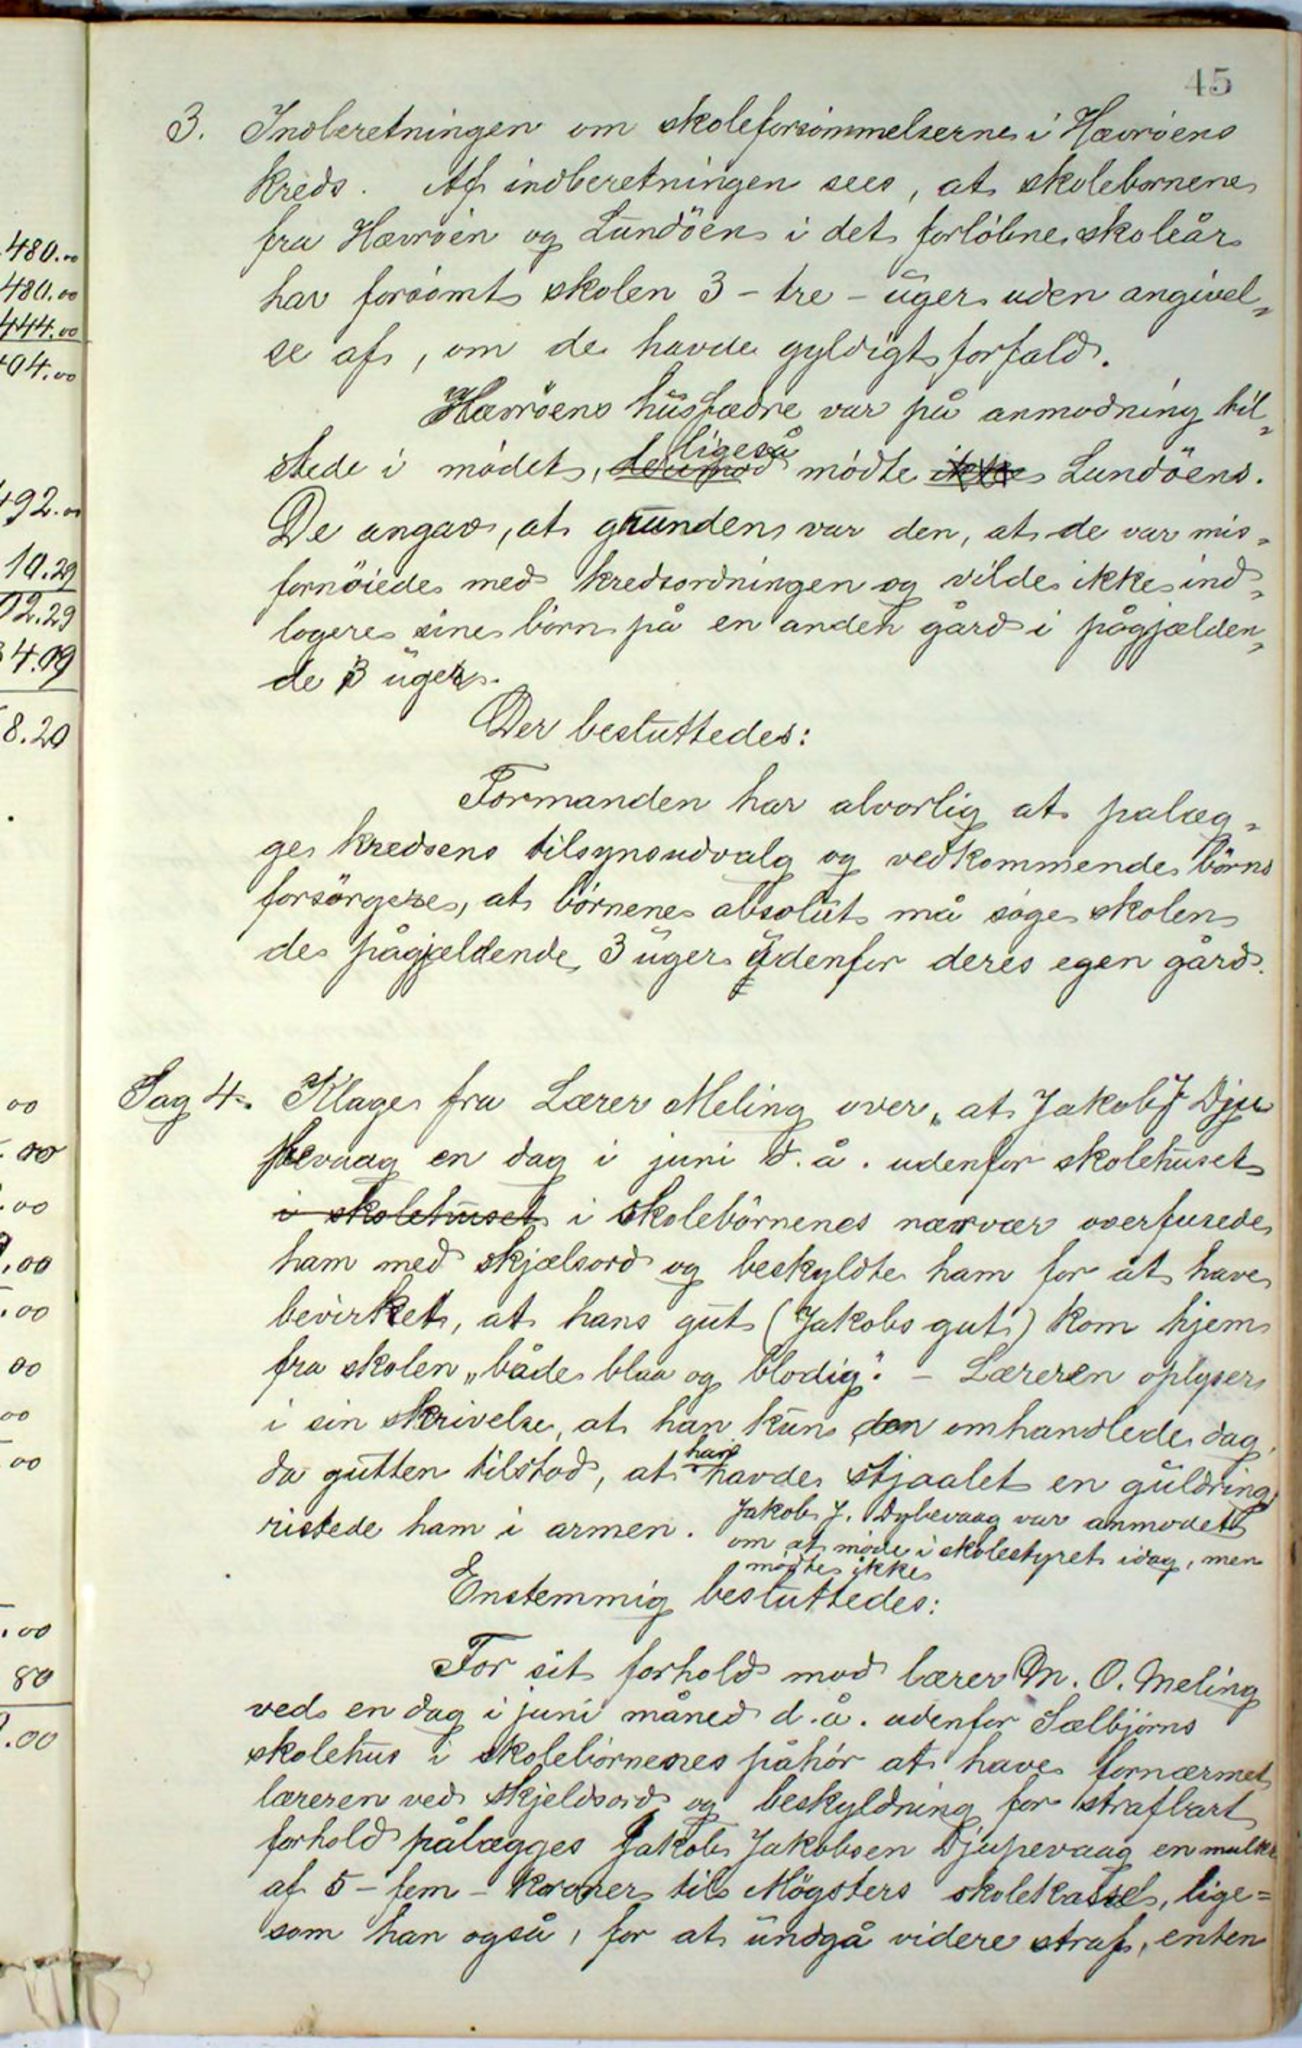 45
3. Indberetningen om skoleforsömmelserne i Hævröens
kreds. Af indberetningen sees, at skolebornene
fra Hævröen og Lundöen i det forlöbne skoleår
har forsömt skolen 3 - tre - uger uden angivel„
se af, om de havde gyldigt forfald.
Hævröens husfædre var på anmodning til„
ligeså
stede i mödet, derimod mödte ikke Lundöens.
De angav, at grunden var den, at de var mis„
fornöiede med kredsordningen og vilde ikke ind„
logere sine börn på en anden gård i pågjælden„
de 3 uger.
Der besluttedes:
Formanden har alvorlig at palæg„
ge kredsens tilsynsudvalg og vedkommende börns
forsörgere, at börnene absolut må söge skolen
de pågjældende 3 uger udenfor deres egen gård.
Sag 4. Klage fra Lærer Meling over, at Jakob J Dju
pevaag en dag i juni d. å. udenfor skolehuset
i skolehuset i skolebörnenes nærvær overfusede
ham med skjælsord og beskyldte ham for at have
bevirket, at hans gut (Jakobs gut) kom hjem
fra skolen „både blaa og blodig". - Læreren oplyser
i sin skrivelse, at han kun den omhandlede dag,
han
da gutten tilstod, at havde stjaalet en guldring
ristede ham i armen. Jakob J. Dybevaag var anmodet
om at möde i skolestyret idag, men
mödte ikke
Enstemmig besluttedes:
For sit forhold mod lærer M. O. Meling
ved en dag i juni måned d. å. udenfor Sælbjörns
skolehus i skolebörnenes påhör at have fornærmet
læreren ved skjeldsord og beskyldning for strafbart
forhold pålægges Jakob Jakobsen Djupevaag en mulkt
af 5 - fem - kroner til Mögsters skolekasse, lige=
som han også, for at undgå videre straf, enten
480.00
480.00
444.00
04.00
492.00
10.29
02.29
4.09
8.20
00
00
.00
.00
.00
00
00
00
.00
80
.00